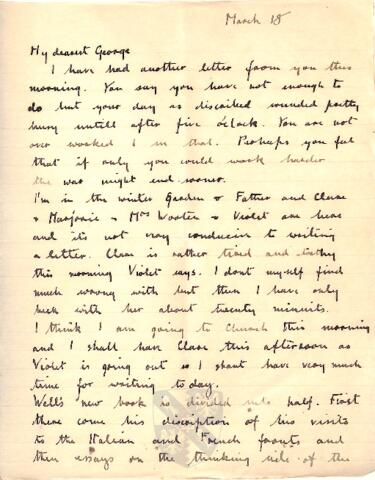 March 18
My dearest George
I have had another letter from you this
morning. You say you have not enough to
do but your day as discribed sounded pretty
busy untill after five o'clock. You are not
over worked in that. Perhaps you feel
that if only you could work harder
the war might end sooner.
I'm in the winter Garden & Father and Clare
& Marjorie & Mrs Wooten & Violet are here
and its not very conducive to writing
a letter. Clare is rather tired and
this morning Violet says. I dont myself find
much wrong with but then I have only
been with her about twenty minuits.
I think I am going to Church this morning
and I shall have Clare this afternoon as
Violet is going out so I shant have very much
time for writing to day.
Well's new book is divided into half. First
there come his discription of his visits
to the Italian and French fronts and
then essays on the thinking side of the